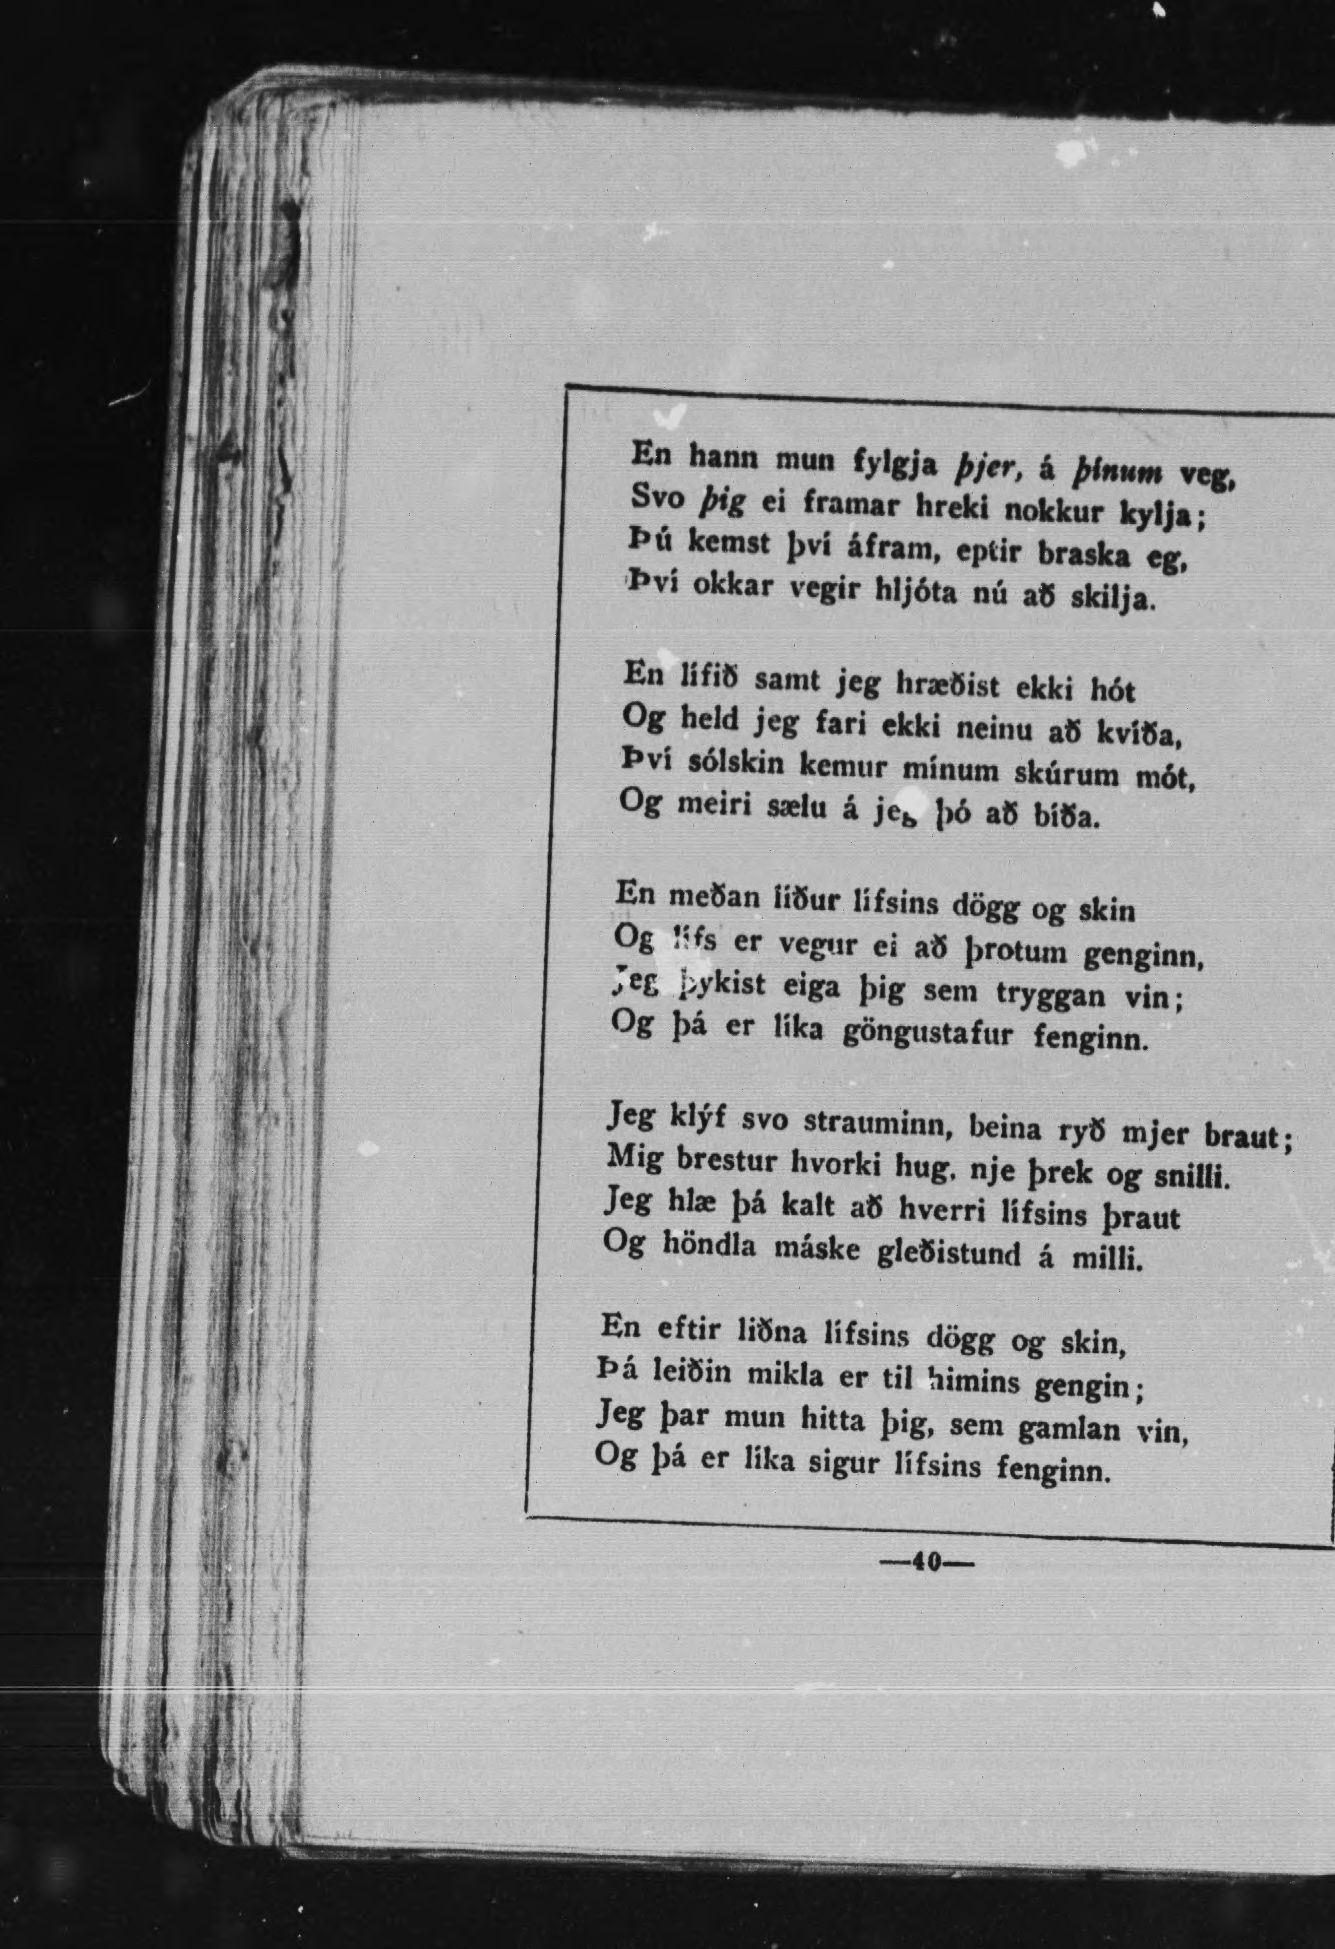 En hann mun fylgja þjer, á þínum veg,
Svo þig ei framar hreki nokkur kylja;
Þú kemst því áfram, eptir braska eg,
Því okkar vegir hljóta nú að skilja.
En lífið samt jeg hræðist ekki hót
Og held jeg fari ekki neinu að kvíða,
Því sólskin kemur mínum skúrum mót,
Og meiri sælu á jeg þó að bíða.
En meðan líður lífsins dögg og skin
Og lífs er vegur ei að þrotum genginn,
Jeg þykist eiga þig sem tryggan vin;
Og þá er líka göngustafur fenginn.
Jeg klýf svo strauminn, beina ryð mjer braut;
Mig brestur hvorki hug, nje þrek og snilli.
Jeg hlæ þá kalt að hverri lífsins þraut
Og höndla máske gleðistund á milli.
En eftir liðna lífsins dögg og skin,
Þá leiðin mikla er til himins gengin;
Jeg þar mun hitta þig, sem gamlan vin,
Og þá er líka sigur lífsins fenginn.
—40—